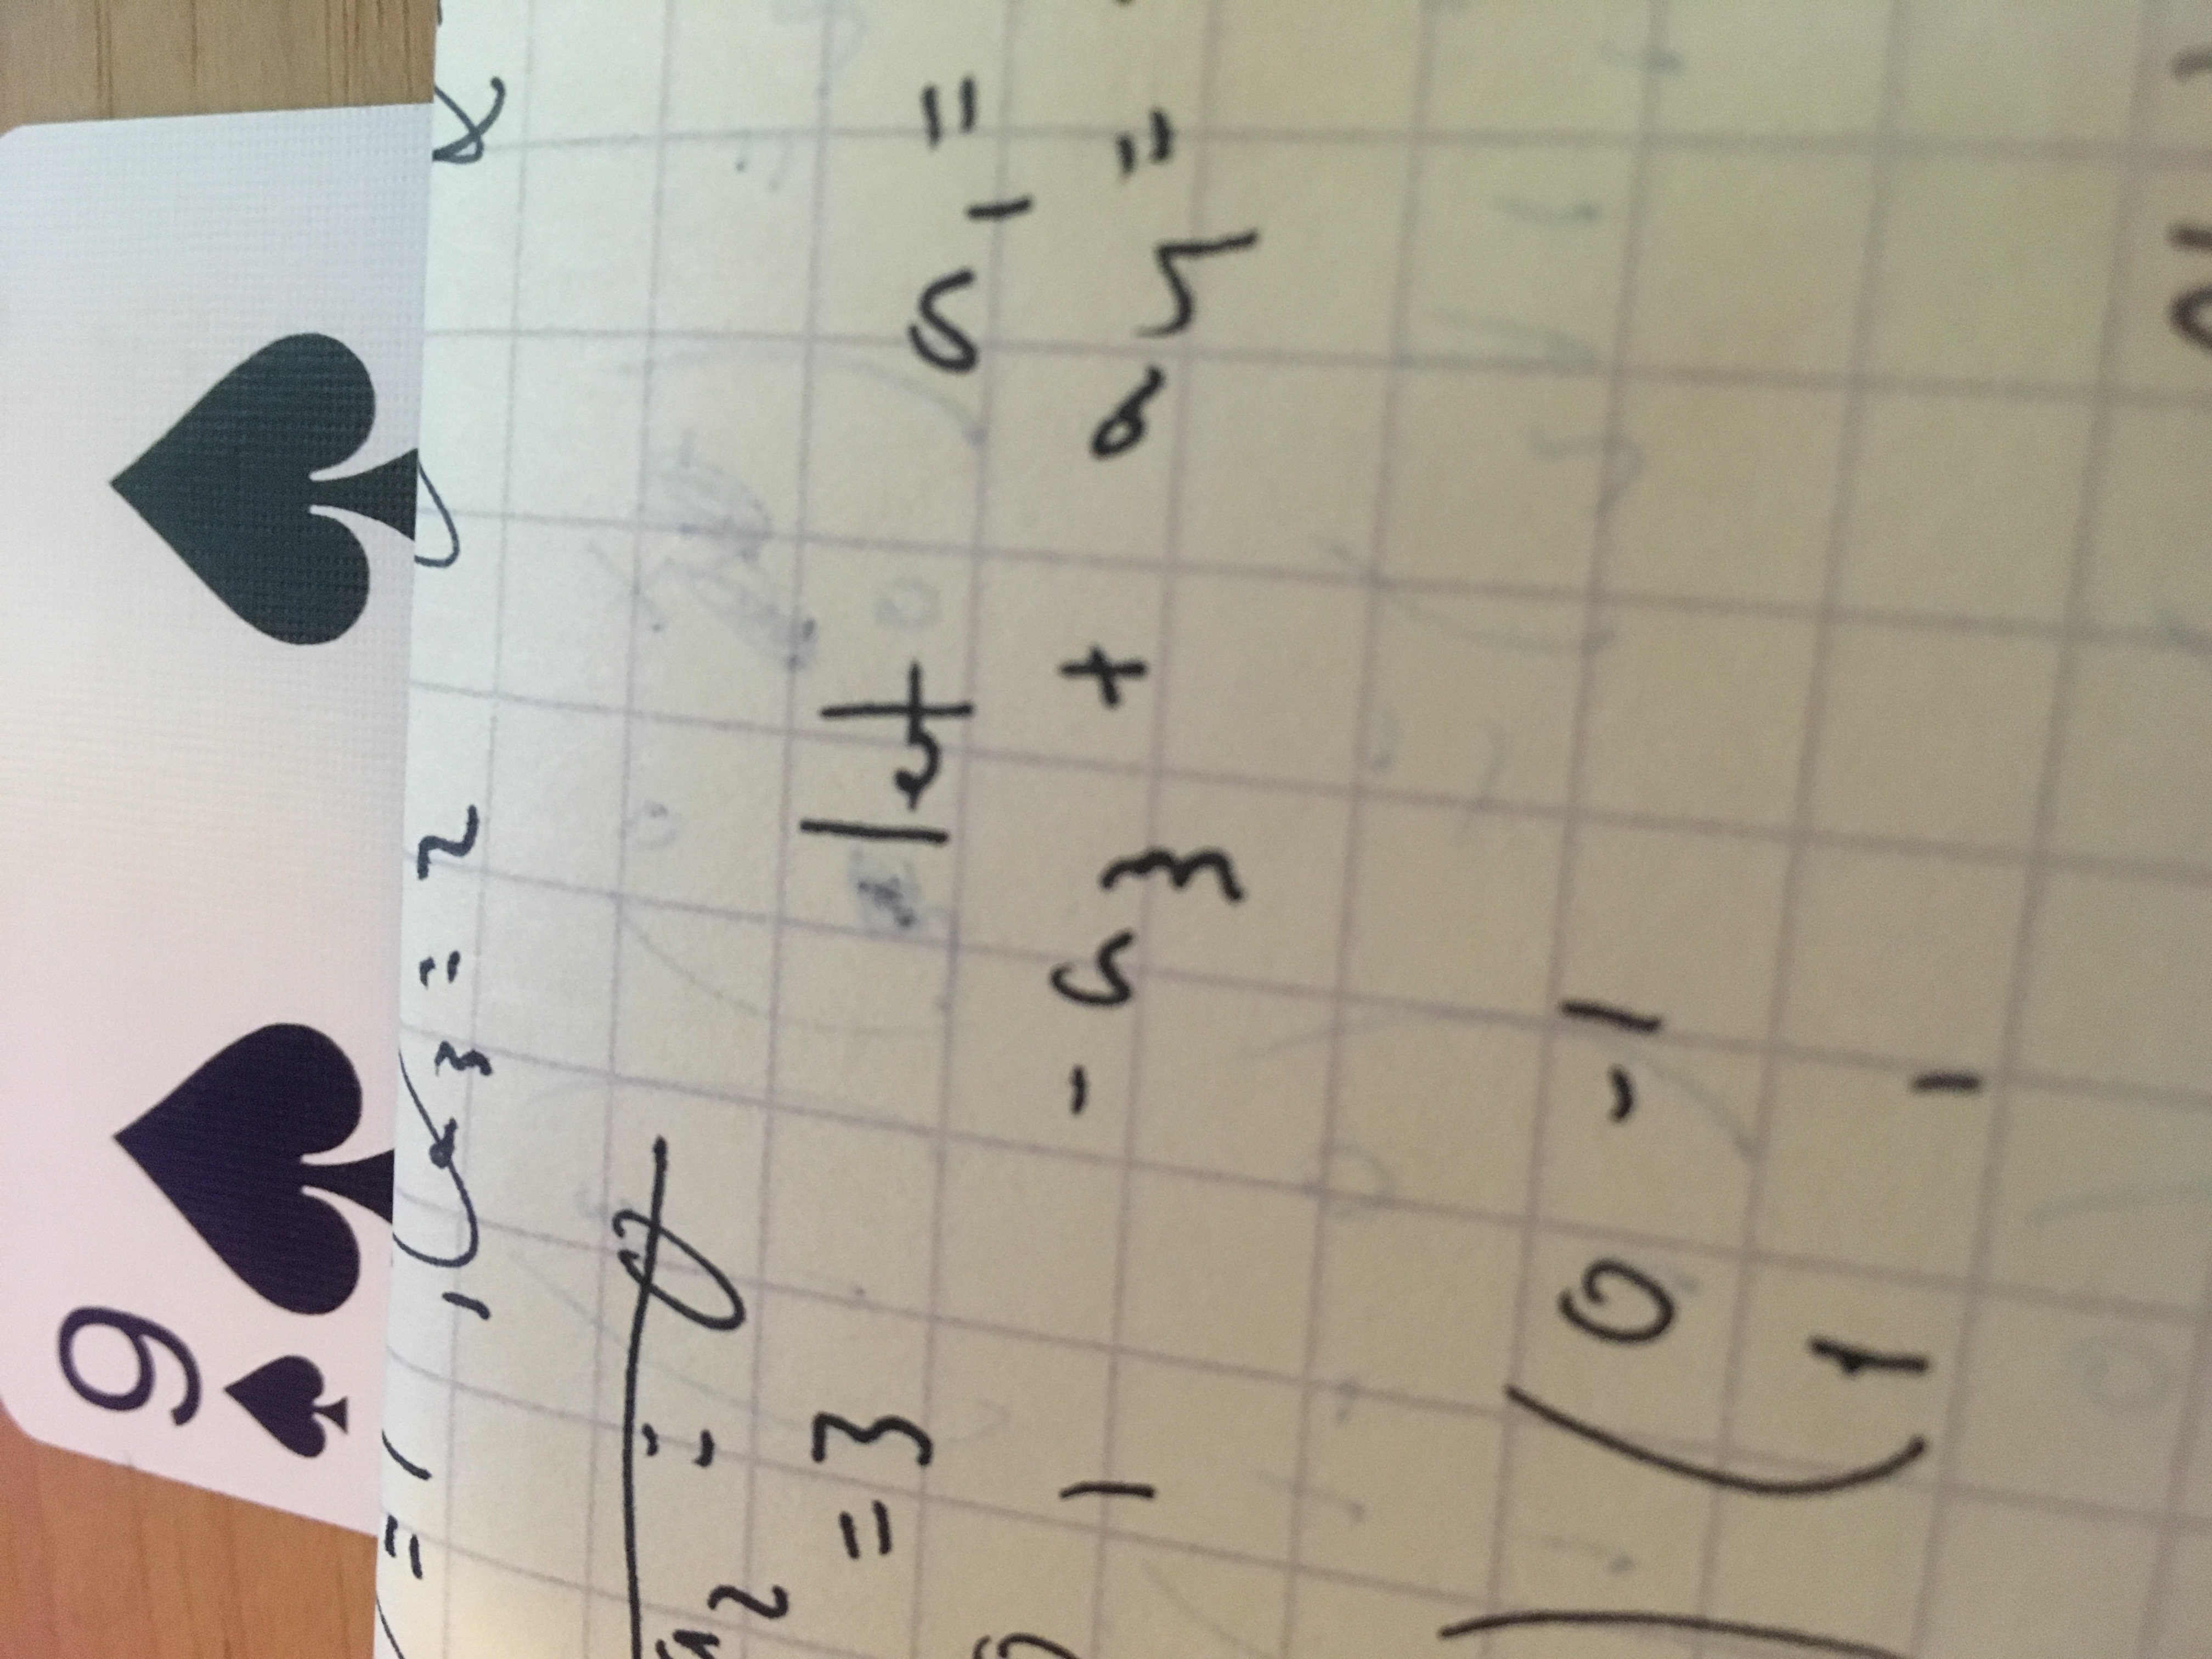 9
= 1 , a₃ = 2
a₂ = 0
= 3 let a₁ =
1 - a₃ + a₄ =
( 0 -1
1 1